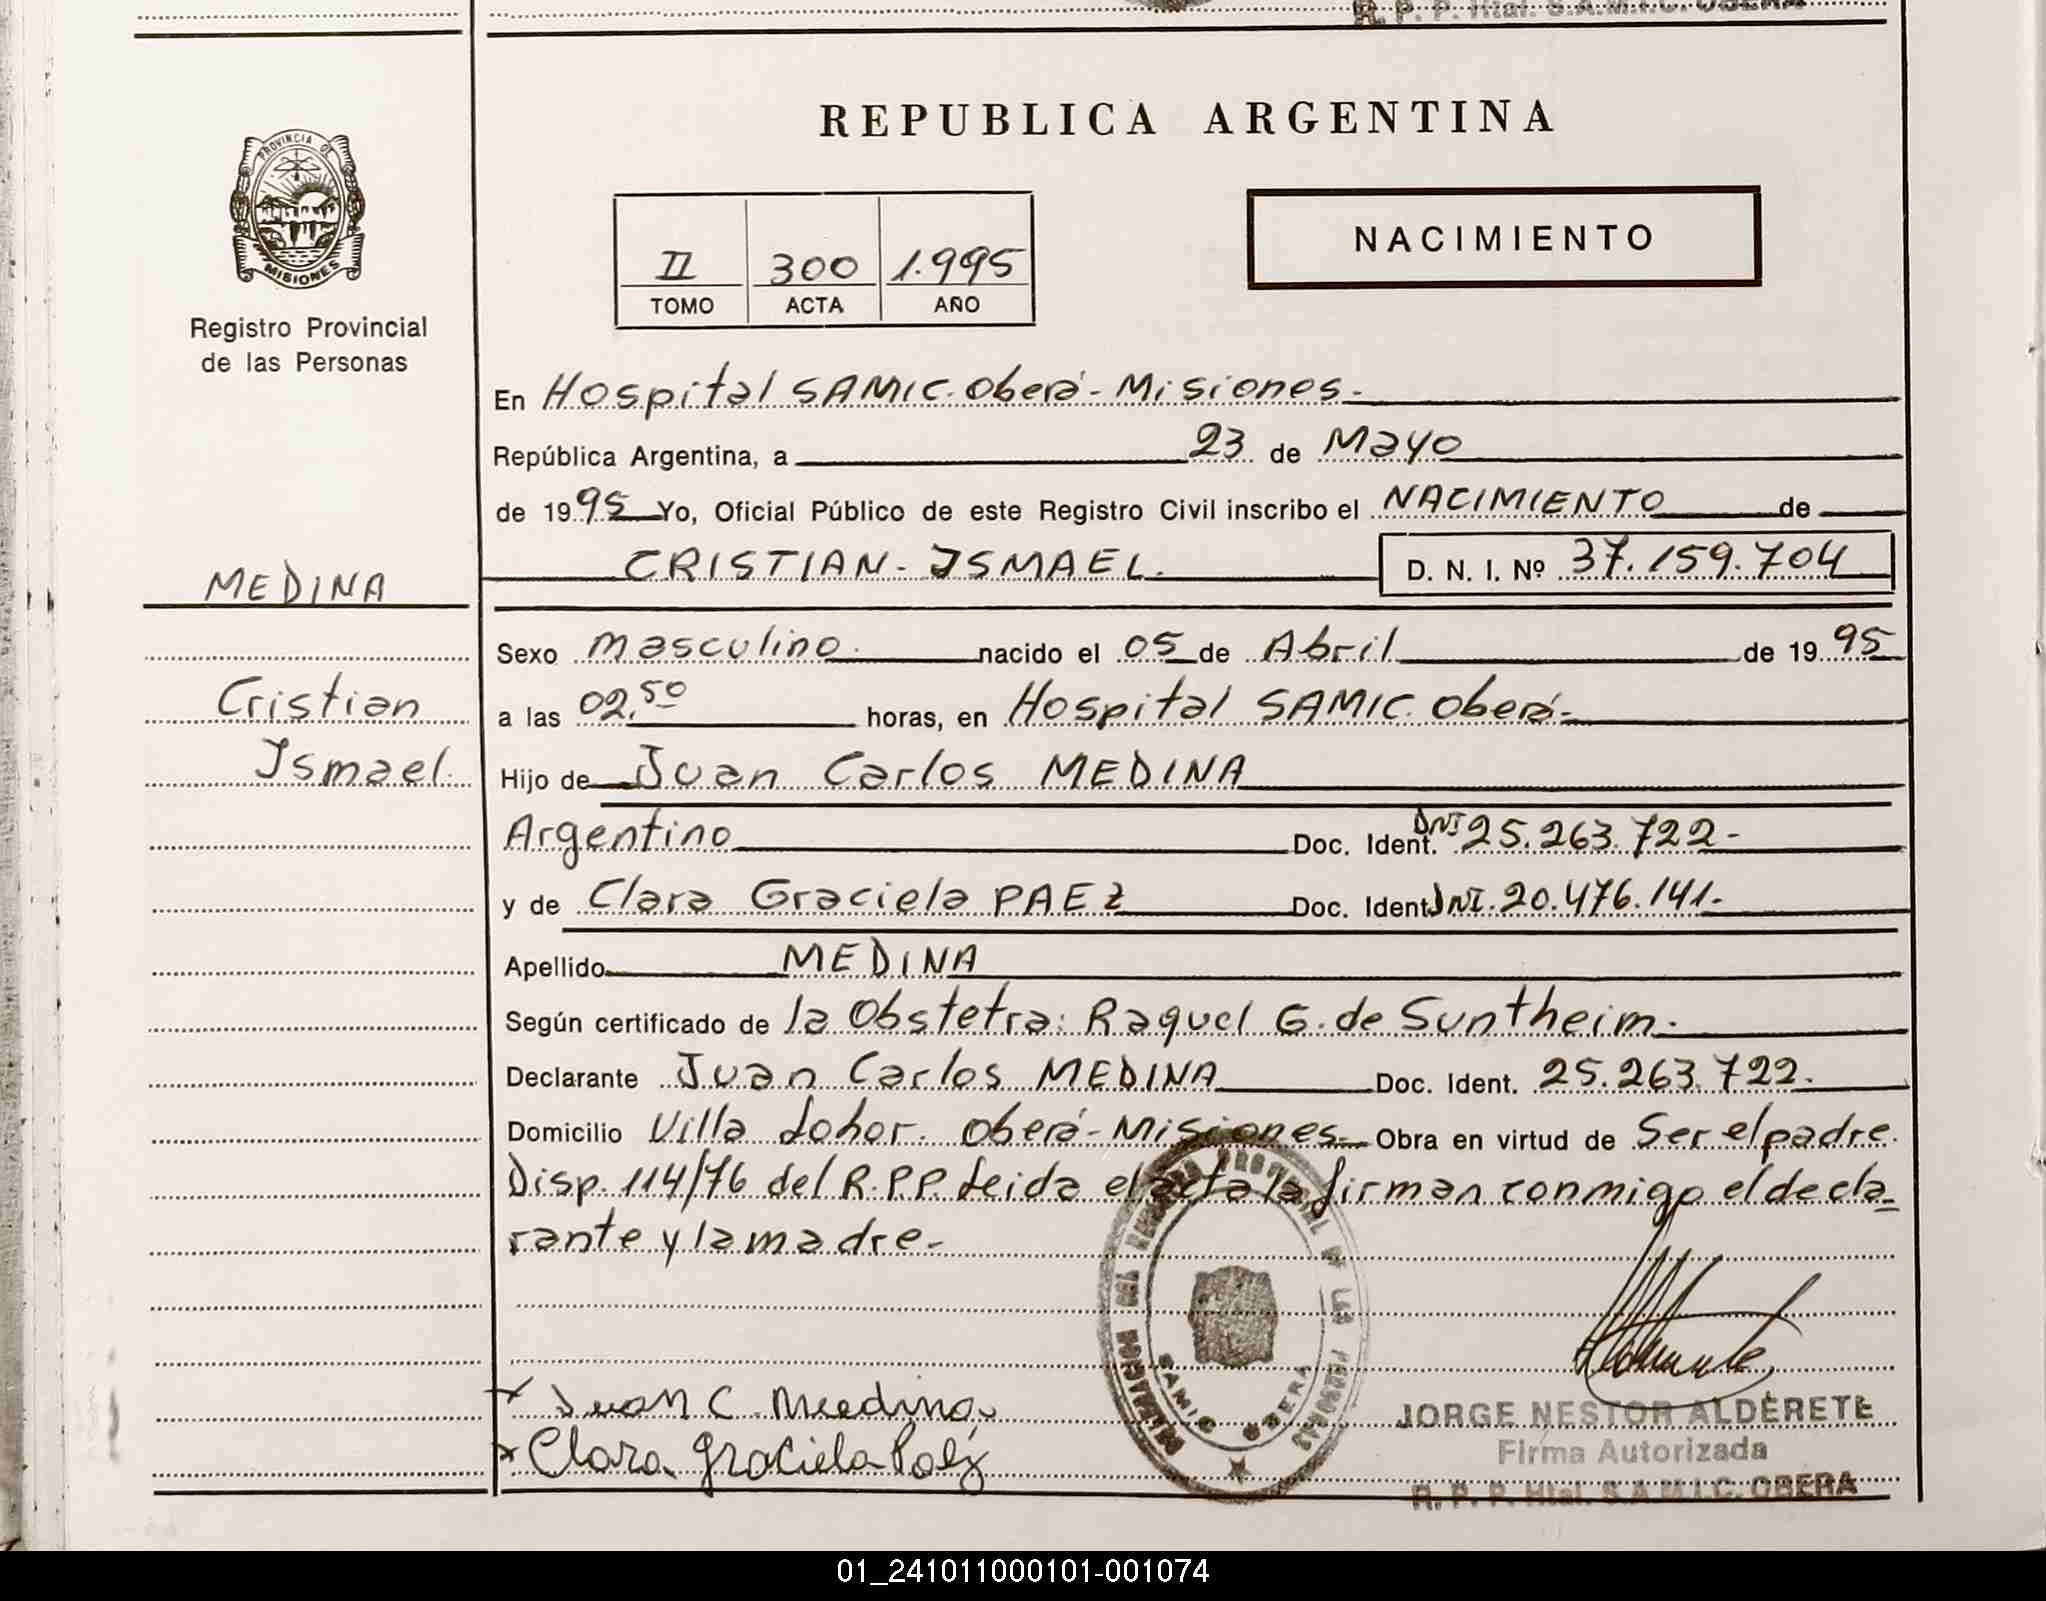 R. P. P. Htal. S.A.M.I.C. OBERA
PROVINCIA DE
MISIONES
Registro Provincial
de las Personas
MEDINA
Cristian
Ismael.
REPUBLICA ARGENTINA
II 300 1.995
TOMO ACTA AÑO
NACIMIENTO
En Hospital SAMIC. Oberá - Misiones.-
República Argentina, a 23 de Mayo
de 1995 Yo, Oficial Público de este Registro Civil inscribo el NACIMIENTO de
CRISTIAN - ISMAEL. D. N. I. Nº 37.159.704
Sexo masculino. nacido el 05 de Abril de 1995
a las 02,50 horas, en Hospital SAMIC. Oberá-
Hijo de Juan Carlos MEDINA
Argentino Doc. Ident. DNI 25.263.722-
y de Clara Graciela PAEZ Doc. Ident DNI. 20.476.141.-
Apellido MEDINA
Según certificado de la Obstetra: Raquel G. de Suntheim.
Declarante Juan Carlos MEDINA Doc. Ident. 25.263.722.
Domicilio Villa Lohor. Oberá - Misiones- Obra en virtud de Ser el padre.
Disp. 114/76 del R.P.P. Leida el acta la firman conmigo el decla-
rante y la madre.-
REGISTRO PROVINCIAL DE LAS PERSONAS
SAMIC OBERA
Juan C. Medina
Clara Graciela Paez
JORGE NESTOR ALDERETE
Firma Autorizada
R. P. P. Htal. S.A.M.I.C. OBERA
01_241011000101-001074